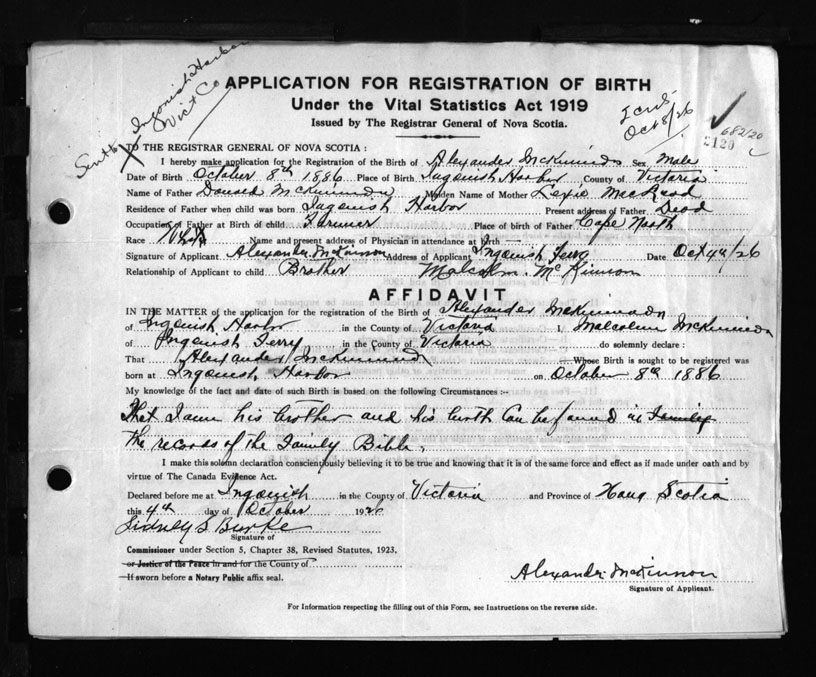 Sent to Ingonish Harbor
Vict Co
APPLICATION FOR REGISTRATION OF BIRTH
Under the Vital Statistics Act 1919
Issued by The Registrar General of Nova Scotia.
Oct 8/26
682/20
2120
TO THE REGISTRAR GENERAL OF NOVA SCOTIA :
I hereby make application for the Registration of the Birth of Alexander McKinnon Sex Male
Date of Birth October 8th 1886 Place of Birth Ingonish Harbor County of Victoria
Name of Father Donald McKinnon Maiden Name of Mother Lexie MacLeod
Residence of Father when child was born Ingonish Harbor Present address of Father Dead
Occupation of Father at Birth of child Farmer Place of birth of Father Cape North
Race White Name and present address of Physician in attendance at birth —
Signature of Applicant Alexander McKinnon Address of Applicant Ingonish Ferry Date Oct 4th/26
Relationship of Applicant to child Brother Malcolm McKinnon
AFFIDAVIT
IN THE MATTER of the application for the registration of the Birth of Alexander McKinnon
of Ingonish Harbor in the County of Victoria I, Malcolm McKinnon
of Ingonish Ferry in the County of Victoria do solemnly declare :
That Alexander McKinnon Whose Birth is sought to be registered was
born at Ingonish Harbor on October 8th 1886
My knowledge of the fact and date of such Birth is based on the following Circumstances :-
That I am his brother and his birth Can be found in Family
the records of the Family Bible.
I make this solemn declaration conscientiously believing it to be true and knowing that it is of the same force and effect as if made under oath and by
virtue of The Canada Evidence Act.
Declared before me at Ingonish in the County of Victoria and Province of Nova Scotia
this 4th day of October 1926
Sidney S Burke
Signature of
Commissioner under Section 5, Chapter 38, Revised Statutes, 1923,
or Justice of the Peace in and for the County of
If sworn before a Notary Public affix seal.
Alexander McKinnon
Signature of Applicant.
For Information respecting the filling out of this Form, see Instructions on the reverse side.